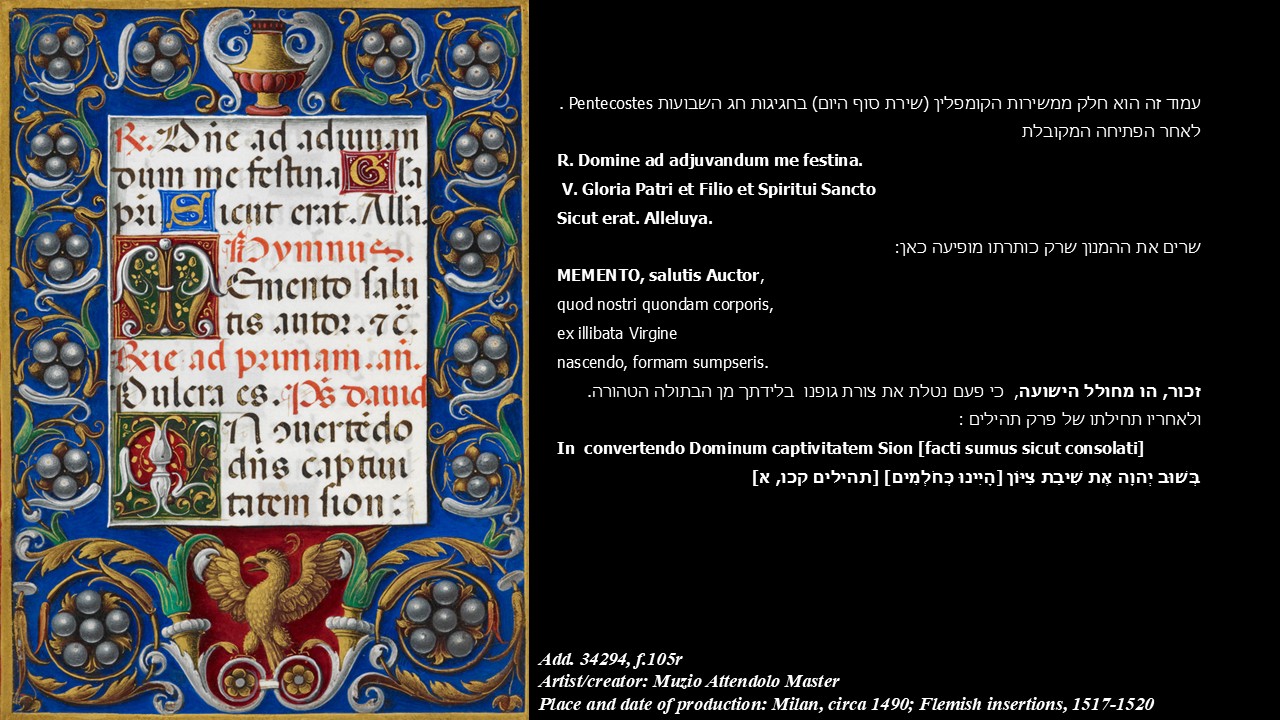 R. Dñe ad adiuuan
dum me festina Gla
pri Sicut erat. Alla.
Hymnus.
MEmento salu
tis autor. ⁊ c̃.
R̃ie ad primam. añ.
Pulcra es. Ps̃ dauid
IN ↄuertẽdo
dñs captiui
tatem sion:
עמוד זה הוא חלק ממשירות הקומפלין (שירת סוף היום) בחגיגות חג השבועות Pentecostes .
לאחר הפתיחה המקובלת
R. Domine ad adjuvandum me festina.
V. Gloria Patri et Filio et Spiritui Sancto
Sicut erat. Alleluya.
שרים את ההמנון שרק כותרתו מופיעה כאן:
MEMENTO, salutis Auctor,
quod nostri quondam corporis,
ex illibata Virgine
nascendo, formam sumpseris.
זכור, הו מחולל הישועה, כי פעם נטלת את צורת גופנו בלידתך מן הבתולה הטהורה.
ולאחריו תחילתו של פרק תהילים :
In convertendo Dominum captivitatem Sion [facti sumus sicut consolati]
בְּשׁוּב יְהוָה אֶת שִׁיבַת צִיּוֹן [הָיִינוּ כְּחֹלְמִים] [תהילים קכו, א]
Add. 34294, f.105r
Artist/creator: Muzio Attendolo Master
Place and date of production: Milan, circa 1490; Flemish insertions, 1517-1520